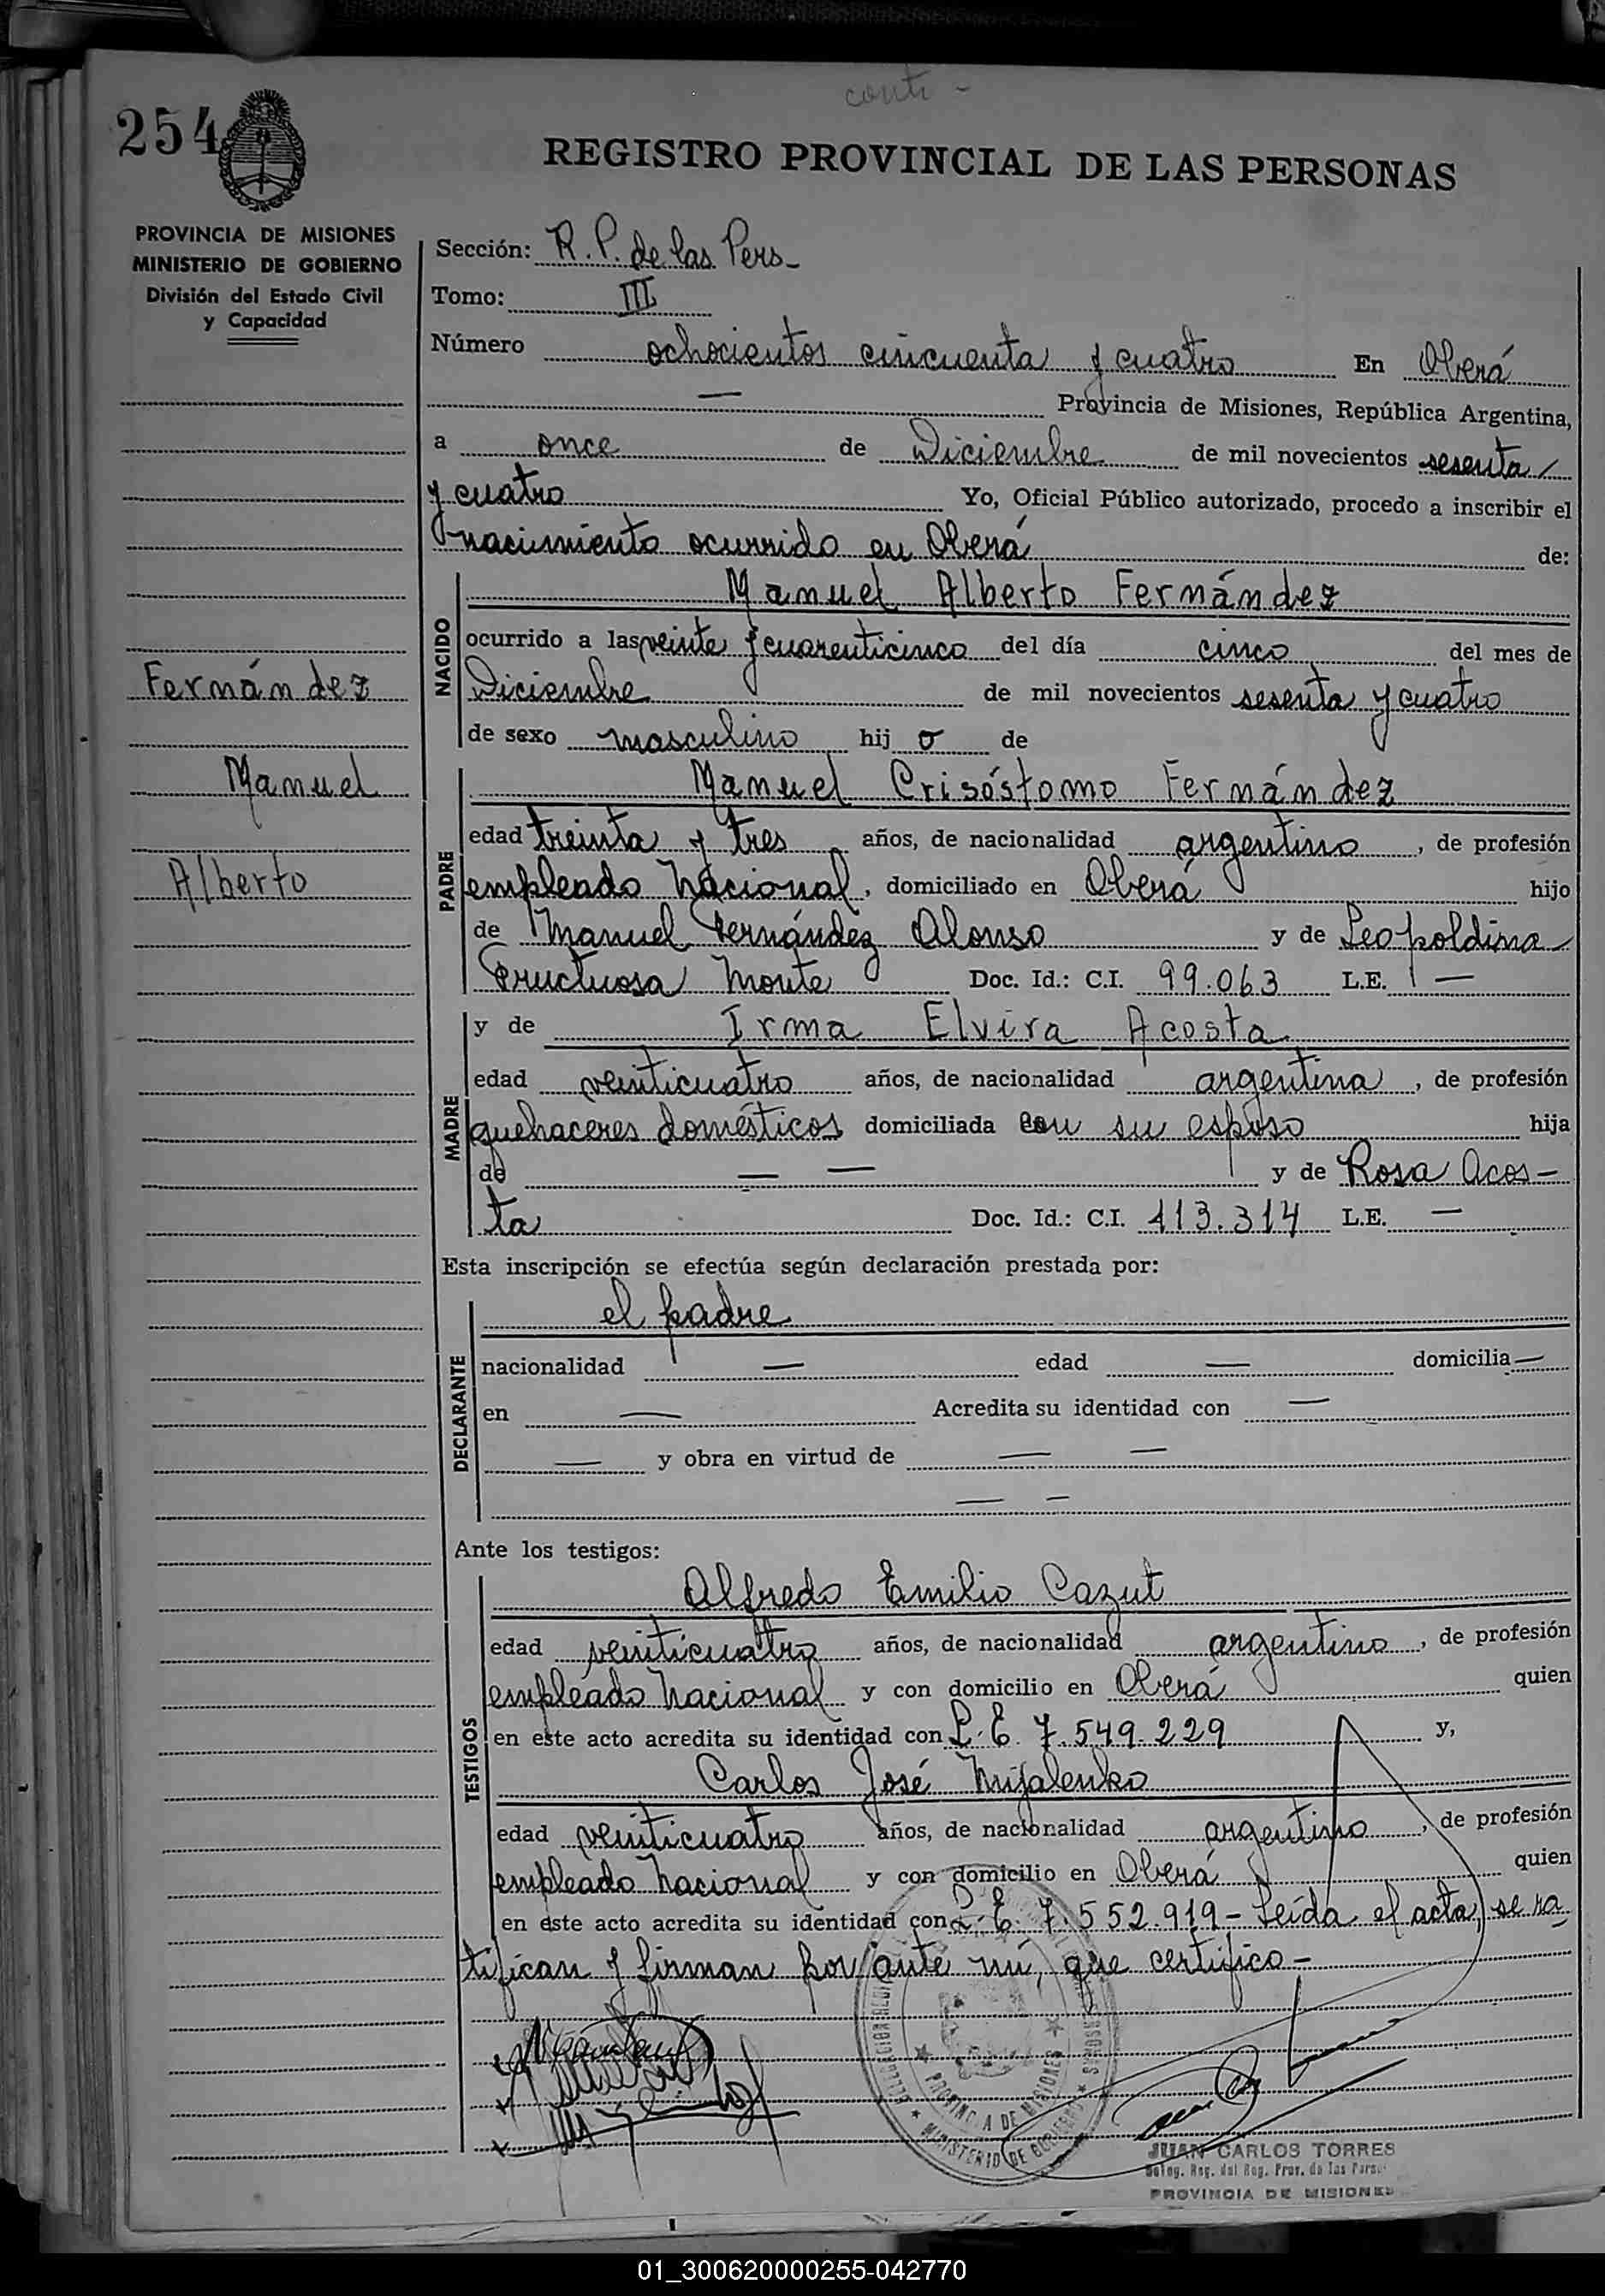 conti -
254
REGISTRO PROVINCIAL DE LAS PERSONAS
PROVINCIA DE MISIONES
MINISTERIO DE GOBIERNO
División del Estado Civil
y Capacidad
Sección: R. P. de las Pers -
Tomo: III
Número ochocientos cincuenta y cuatro En Oberá
— Provincia de Misiones, República Argentina,
a once de Diciembre de mil novecientos sesenta /
y cuatro Yo, Oficial Público autorizado, procedo a inscribir el
nacimiento ocurrido en Oberá de:
NACIDO
Manuel Alberto Fernández
ocurrido a las veinte y cuarenticinco del día cinco del mes de
Diciembre de mil novecientos sesenta y cuatro
de sexo masculino hij o de
Fernández
Manuel
Alberto
PADRE
Manuel Crisóstomo Fernández
edad treinta y tres años, de nacionalidad argentino, de profesión
empleado nacional, domiciliado en Oberá hijo
de Manuel Fernández Alonso y de Leopoldina
Fructuosa Monte Doc. Id.: C.I. 99.063 L.E. —
MADRE
y de Irma Elvira Acosta
edad veinticuatro años, de nacionalidad argentina, de profesión
quehaceres domésticos domiciliada con su esposo hija
de — — y de Rosa Acos-
ta Doc. Id.: C.I. 113.314 L.E. —
Esta inscripción se efectúa según declaración prestada por:
DECLARANTE
el padre
nacionalidad — edad — domicilia —
en — Acredita su identidad con —
— y obra en virtud de — —
— —
Ante los testigos:
TESTIGOS
Alfredo Emilio Cazut
edad veinticuatro años, de nacionalidad argentino, de profesión
empleado nacional y con domicilio en Oberá quien
en este acto acredita su identidad con L. E. 7.549.229 y,
Carlos José Mijalenko
edad veinticuatro años, de nacionalidad argentino, de profesión
empleado nacional y con domicilio en Oberá quien
en este acto acredita su identidad con L. E. 7.552.919 - Leída el acta, se ra
tifican y firman por ante mí, que certifico -
PROVINCIA DE MISIONES
MINISTERIO DE GOBIERNO
JUAN CARLOS TORRES
Deleg. Reg. del Reg. Prov. de las Pers.
PROVINCIA DE MISIONES
01_300620000255-042770